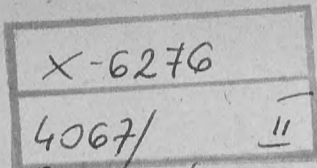 X-6276
4067/ II